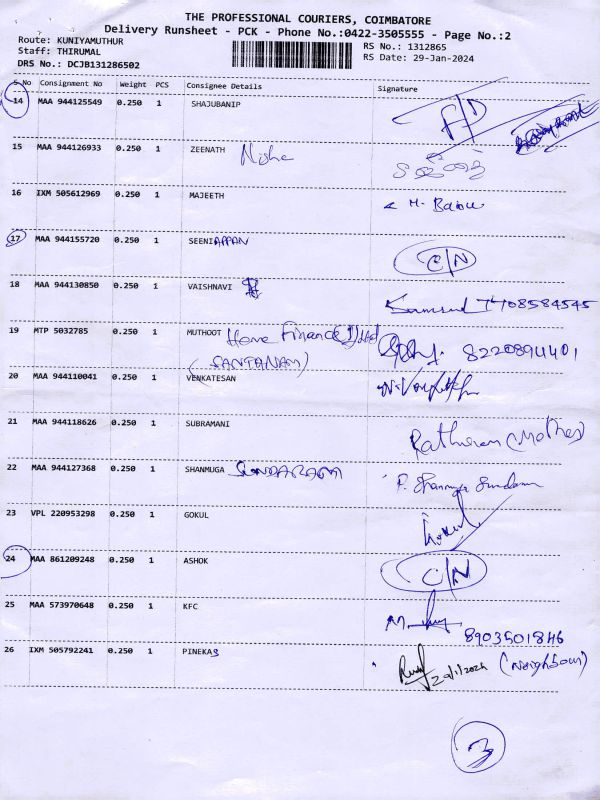 THE PROFESSIONAL COURIERS, COIMBATORE
Delivery Runsheet - PCK - Phone No.:0422-3505555 - Page No.:2
Route: KUNIYAMUTHUR
Staff: THIRUMAL
DRS No.: DCJB131286502
RS No.: 1312865
RS Date: 29-Jan-2024
S No Consignment No Weight PCS Consignee Details Signature
14 MAA 944125549 0.250 1 SHAJUBANIP A/D
15 MAA 944126933 0.250 1 ZEENATH Nisha
16 IXM 505612969 0.250 1 MAJEETH M. Banu
17 MAA 944155720 0.250 1 SEENIAPPAN C/N
18 MAA 944130850 0.250 1 VAISHNAVI 7708584545
19 MTP 5032785 0.250 1 MUTHOOT Home Finance(I)Ltd 8220894401
(SANTANAM)
20 MAA 944110041 0.250 1 VENKATESAN
21 MAA 944118626 0.250 1 SUBRAMANI (Mother)
22 MAA 944127368 0.250 1 SHANMUGA SUNDARAM P. Shanmuga Sundaram
23 VPL 220953298 0.250 1 GOKUL Gokul
24 MAA 861209248 0.250 1 ASHOK C/N
25 MAA 573970648 0.250 1 KFC 8903501846
26 IXM 505792241 0.250 1 PINEKAS 29/1/2024 (Neighbour)
3